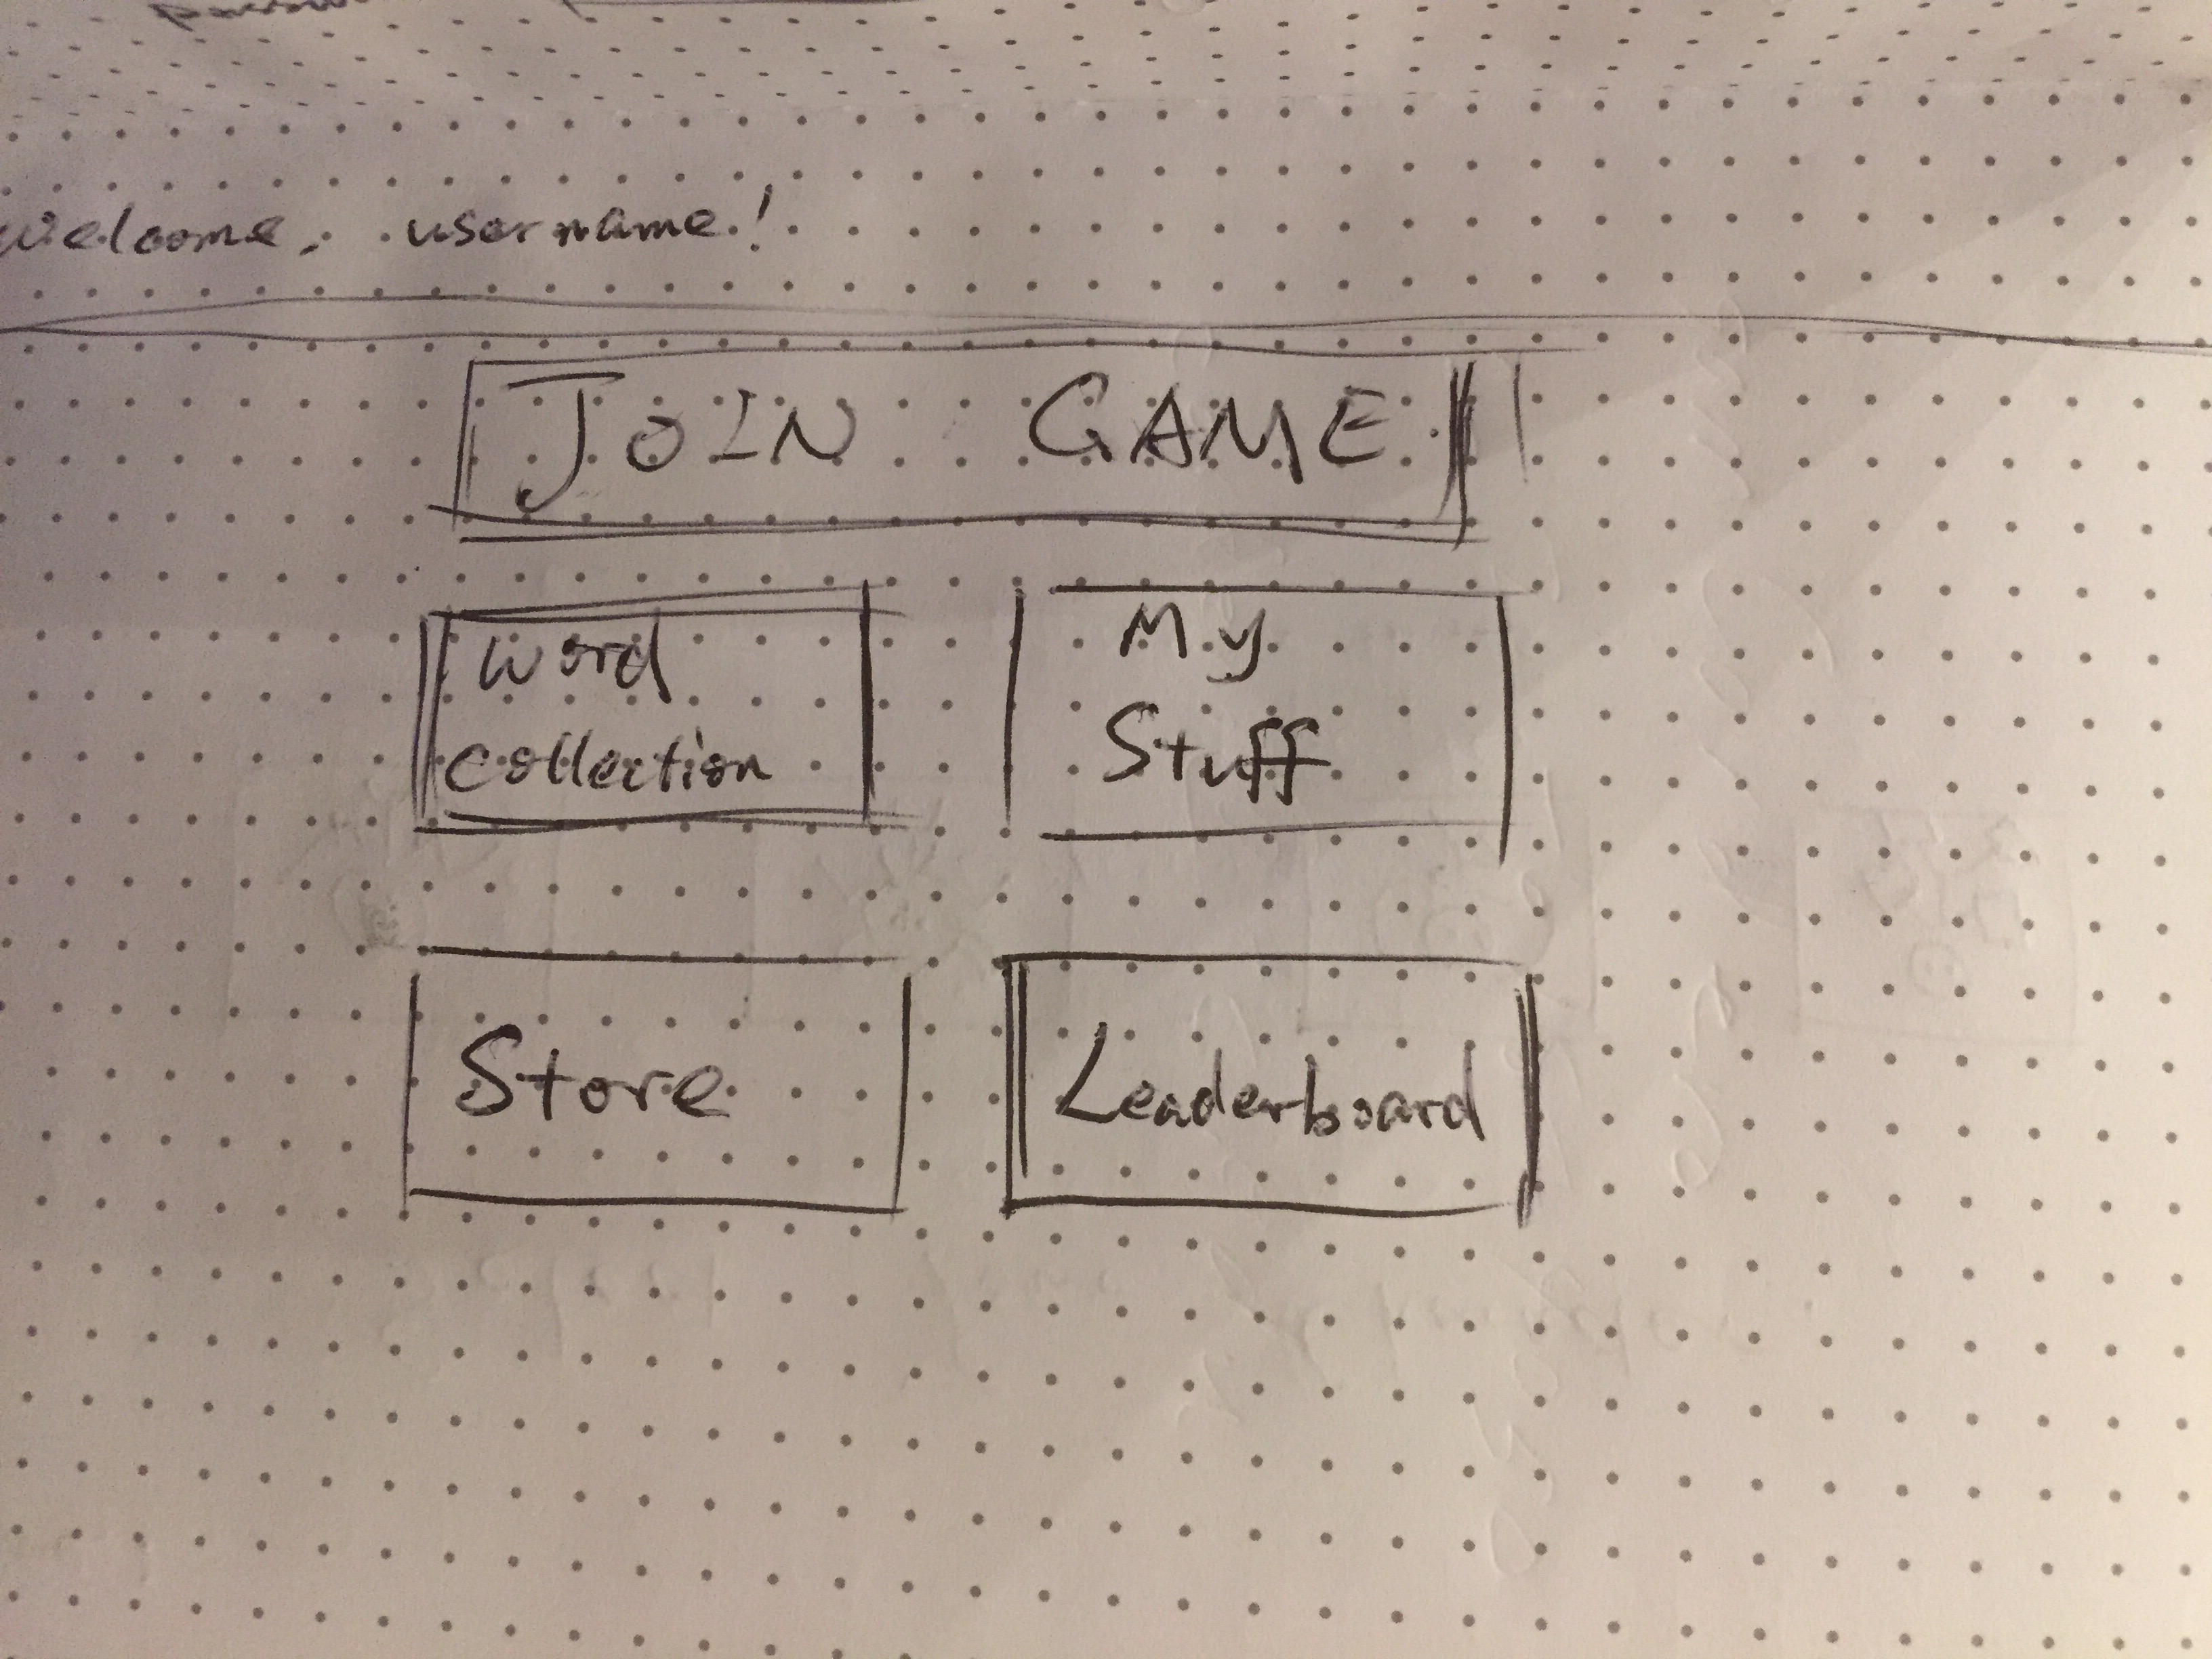 welcome, username!
JOIN GAME
word
collection
My
Stuff
Store
Leaderboard